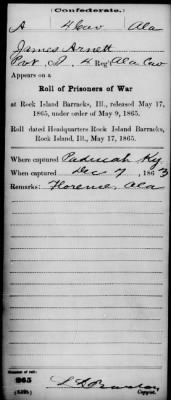 (Confederate.)
A 4 Cav Ala
James Arnett
Pvt, Co. I, 4 Reg't Ala Cav
Appears on a
Roll of Prisoners of War
at Rock Island Barracks, Ill., released May 17,
1865, under order of May 9, 1865.
Roll dated Headquarters Rock Island Barracks,
Rock Island, Ill., May 17, 1865.
Where captured Paducah Ky
When captured Dec 7, 1863
Remarks: Florence, Ala
Number of roll:
265
Copyist.